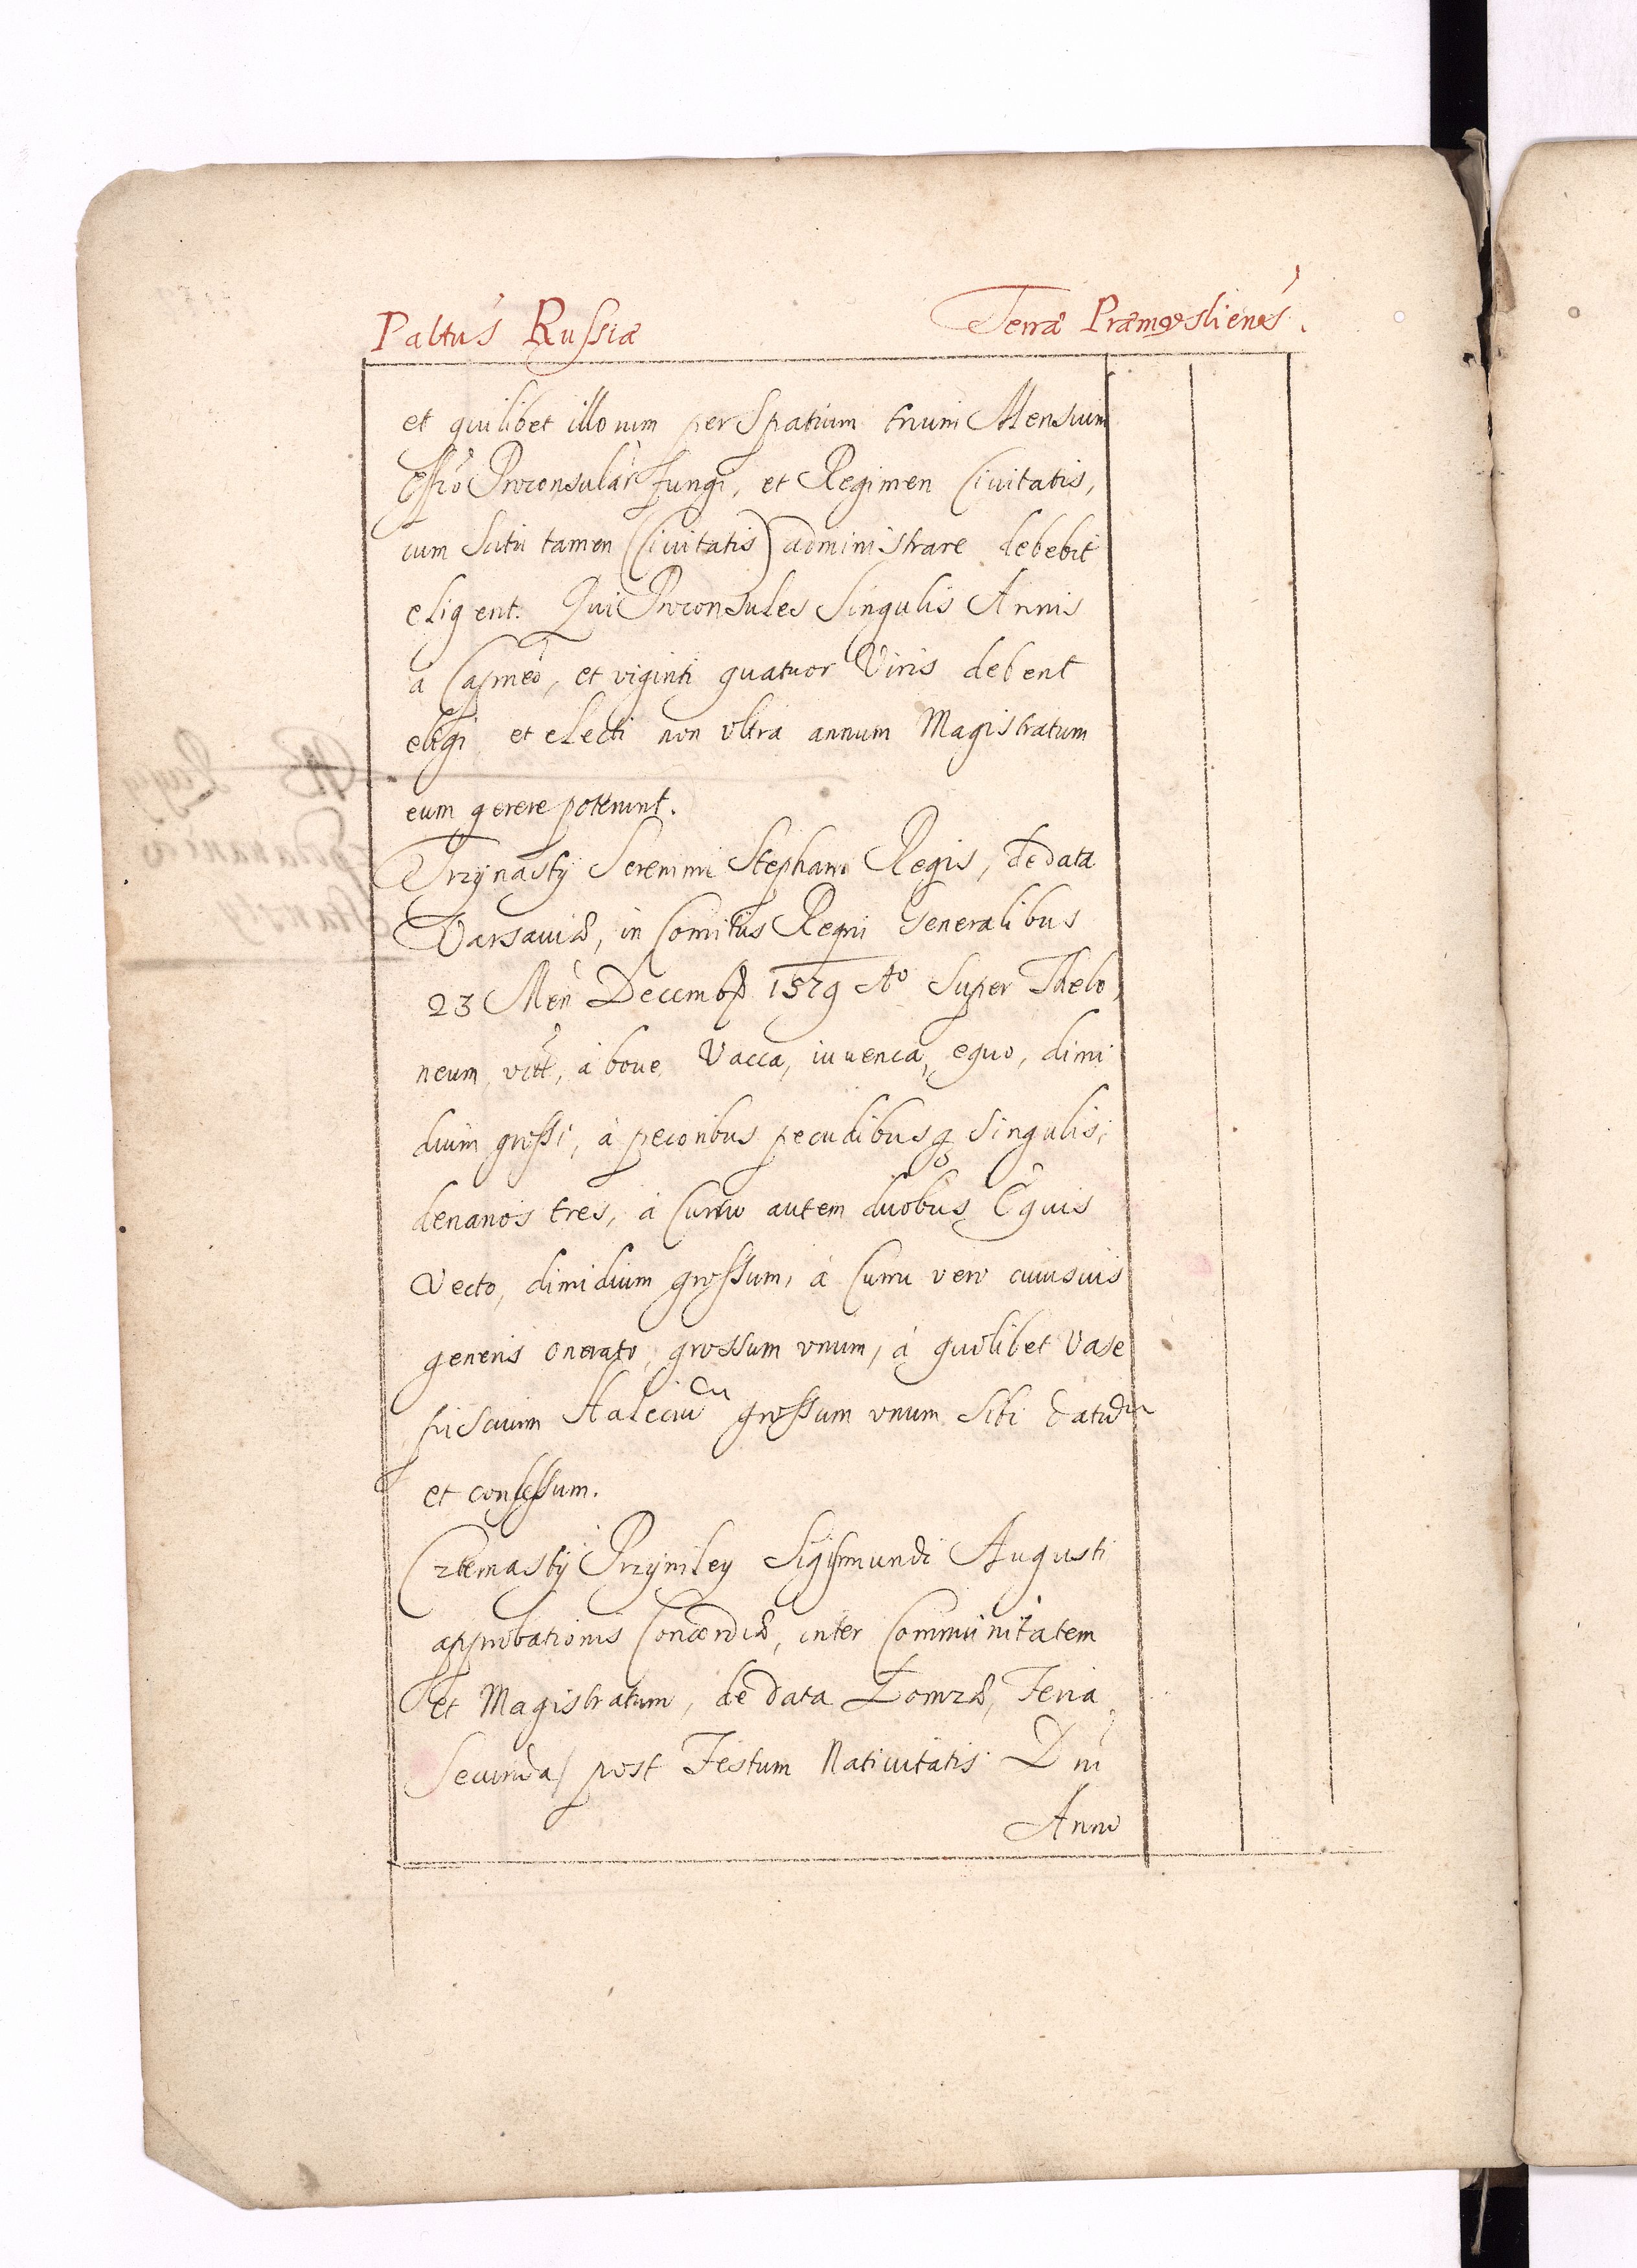 Paltus Russiæ Terræ Præmysliens.
et quilibet illorum per Spatium trium Mensium
Offo Proconsulari fungi, et Regimen Civitatis,
cum Scitu tamen (Civitatis) administrare debebit
eligent. Qui Proconsules Singulis Annis
a Capneo, et viginti quatuor Viris debent
eligi et electi non vltra annum Magistratum
eum gerere poterunt.
Trzynasty Serenmi Stephani Regis, de data
Varsaviæ, in Comitiis Regni Generalibus
23 Men Decemb 1579 Ao Super Thelo,
neum, vitt, à boue Vacca, iuuenca, equo, dimi
dium grossi, à pecoribus pecudibusq Singulis,
denarios tres, à Curru autem duobus Equis
Vecto, dimidium grossum, à Curru vero cuiusuis
generis onerato, grossum vnum, à quolibet Vase
pisciuim Haleciu grossum vnum Sibi datum
et consessum.
Czternasty Przywiley Sigismundi Augusti
approbationis Concordiæ, inter Communitatem
et Magistratum, de data Łomzæ, Feria
Secunda post Festum Nativitatis Dni
Anno